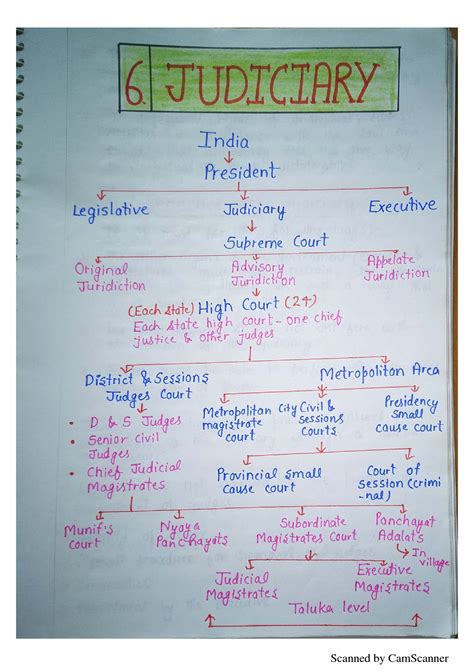 6. JUDICIARY
India
President
Legislative Judiciary Executive
Supreme Court
Original Juridiction
Advisory Juridiction
Appelate Juridiction
(Each state) High Court (24)
Each state high court - one chief
justice & other judges
District & Sessions
Judges Court
Metropolitan Area
• D & S Judges
• Senior Civil
Judges
• Chief Judicial
Magistrates
Metropolitan
magistrate
court
City Civil &
Sessions
Courts
Presidency
Small
cause court
Provincial small
cause court
Court of
Session (crimi
-nal)
Munif's
Court
Nyaya
Panchayats
Subordinate
Magistrates Court
Panchayat
Adalat's
In
village
Judicial
Magistrates
Executive
Magistrates
Taluka level
Scanned by CamScanner